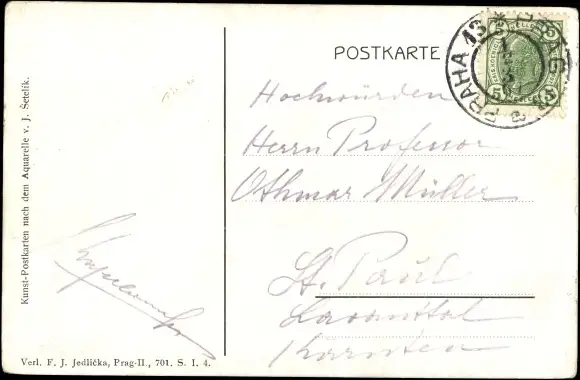 POSTKARTE
PRAHA 13 * PRAG 13
5 5
5 5
Hochwürden
Herrn Professor
Othmar Müller
St. Paul
Lavanttal
Kärnten
Kunst-Postkarten nach dem Aquarelle v. J. Šetelík.
Verl. F. J. Jedlička, Prag-II., 701. S. I. 4.